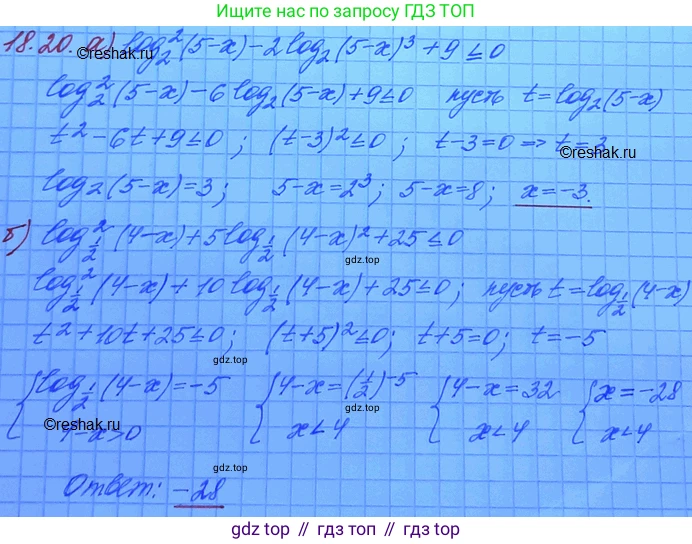 Ищите нас по запросу ГДЗ ТОП
18.20. а) log₂²(5-x)-2log₂(5-x)³+9≤0
©reshak.ru
log₂²(5-x)-6log₂(5-x)+9≤0 пусть t=log₂(5-x)
t²-6t+9≤0; (t-3)²≤0; t-3=0⇒t=3
©reshak.ru
log₂(5-x)=3; 5-x=2³; 5-x=8; x=-3.
б) log²_{1/2}(4-x)+5log_{1/2}(4-x)²+25≤0
gdz.top
log²_{1/2}(4-x)+10log_{1/2}(4-x)+25≤0; пусть t=log_{1/2}(4-x)
t²+10t+25≤0; (t+5)²≤0; t+5=0; t=-5
gdz.top
{log_{1/2}(4-x)=-5 {4-x=(1/2)⁻⁵ {4-x=32 {x=-28
gdz.top
4-x>0 x<4 x<4 x<4
©reshak.ru
gdz.top
Ответ: -28
gdz.top
gdz.top // гдз топ // gdz.top